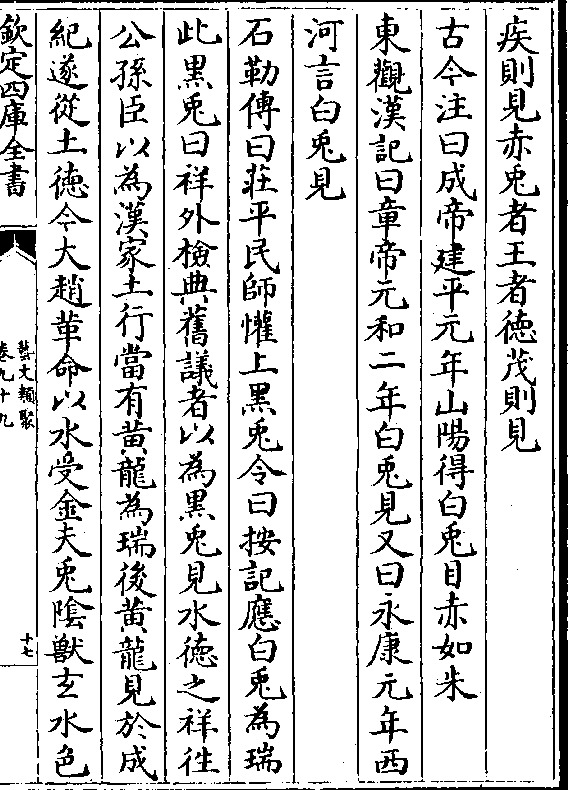 疾則見赤兎者王者徳茂則見
古今注曰成帝建平元年山陽得白兎目赤如朱
東觀漢記曰章帝元和二年白兎見又曰永康元年西
河言白兎見
石勒傳曰莊平民師懽上黑兎令曰按記應白兎為瑞
此黑兎曰祥外檢典舊議者以為黑兎見水徳之祥徃
公孫臣以為漢家土行當有黄龍為瑞後黄龍見於成
紀遂從土徳今大趙革命以水受金夫兎陰獸玄水色
欽定四庫全書
藝文類聚
卷九十九
十七